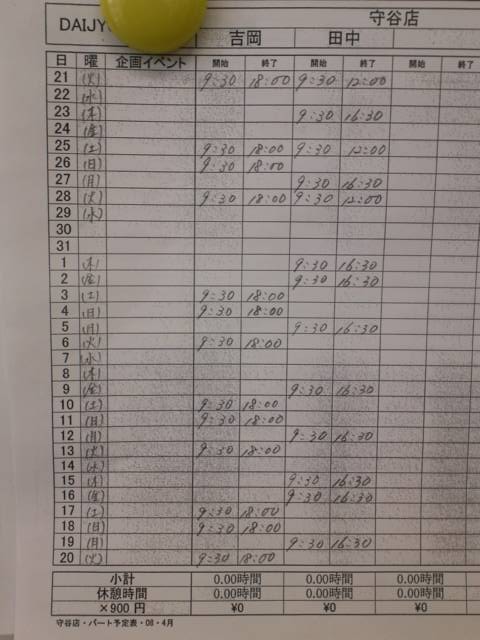 DAIJY 守谷店
吉岡 田中
日 曜 企画イベント 開始 終了 開始 終了
21 (火) 9:30 18:00 9:30 12:00
22 (水)
23 (木) 9:30 16:30
24 (金)
25 (土) 9:30 18:00 9:30 12:00
26 (日) 9:30 18:00
27 (月) 9:30 16:30
28 (火) 9:30 18:00 9:30 12:00
29 (水)
30
31
1 (木) 9:30 16:30
2 (金) 9:30 16:30
3 (土) 9:30 18:00
4 (日) 9:30 18:00
5 (月) 9:30 16:30
6 (火) 9:30 18:00
7 (水)
8 (木)
9 (金) 9:30 16:30
10 (土) 9:30 18:00
11 (日) 9:30 18:00
12 (月) 9:30 16:30
13 (火) 9:30 18:00
14 (水)
15 (木) 9:30 16:30
16 (金) 9:30 16:30
17 (土) 9:30 18:00
18 (日) 9:30 18:00
19 (月) 9:30 16:30
20 (火) 9:30 18:00
小計 0.00時間 0.00時間 0.00時間
休憩時間 0.00時間 0.00時間 0.00時間
×900 円 ¥0 ¥0 ¥0
守谷店・パート予定表・08・4月